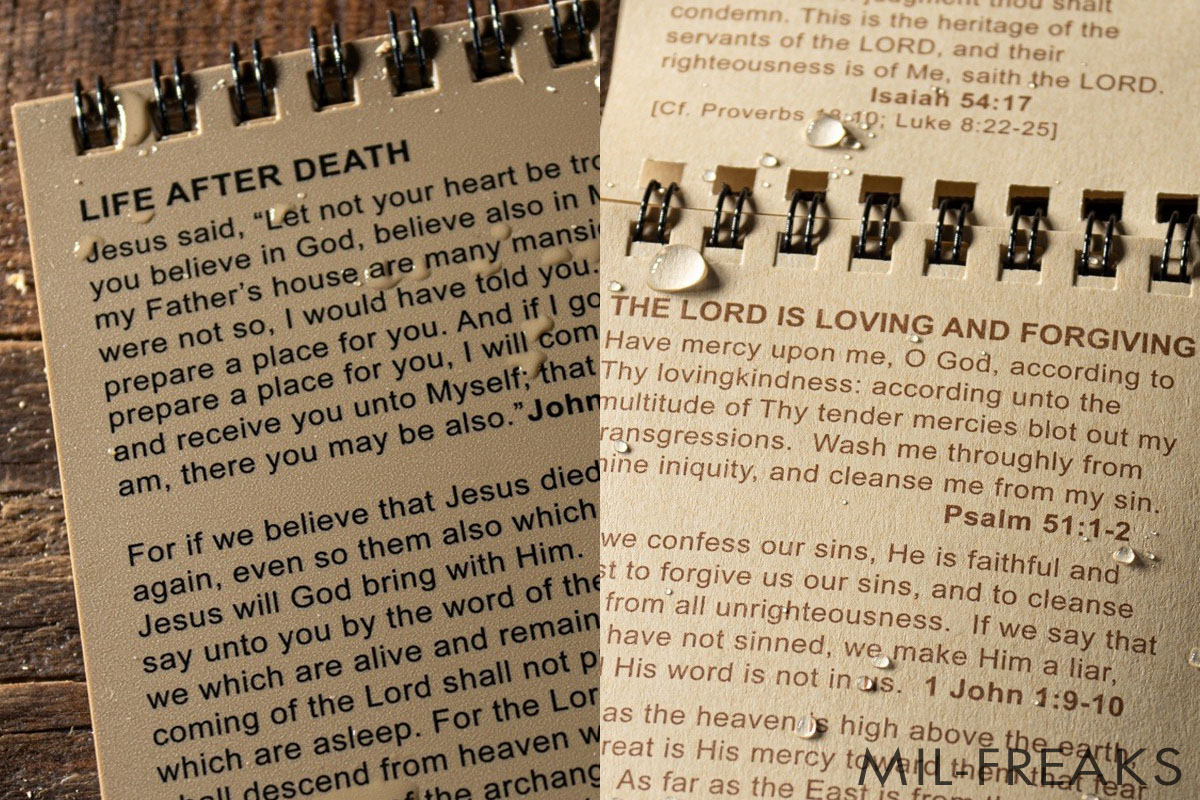 LIFE AFTER DEATH
Jesus said, “Let not your heart be
you believe in God, believe also in
my Father’s house are many
were not so, I would have told you.
prepare a place for you. And if I go
prepare a place for you, I will
and receive you unto Myself; that
am, there you may be also.” John
For if we believe that Jesus died
again, even so them also which
Jesus will God bring with Him.
say unto you by the word of the
we which are alive and remain
coming of the Lord shall not
which are asleep. For the
descend from heaven
of the
judgment thou shalt
condemn. This is the heritage of the
servants of the LORD, and their
righteousness is of Me, saith the LORD.
Isaiah 54:17
[Cf. Proverbs 18:10; Luke 8:22-25]
THE LORD IS LOVING AND FORGIVING
Have mercy upon me, O God, according to
Thy lovingkindness: according unto the
multitude of Thy tender mercies blot out my
transgressions. Wash me throughly from
mine iniquity, and cleanse me from my sin.
Psalm 51:1-2
we confess our sins, He is faithful and
to forgive us our sins, and to cleanse
from all unrighteousness. If we say that
have not sinned, we make Him a liar,
His word is not in us. 1 John 1:9-10
as the heaven is high above the earth
is His mercy toward them that fear
As far as the East is from the
MIL-FREAKS